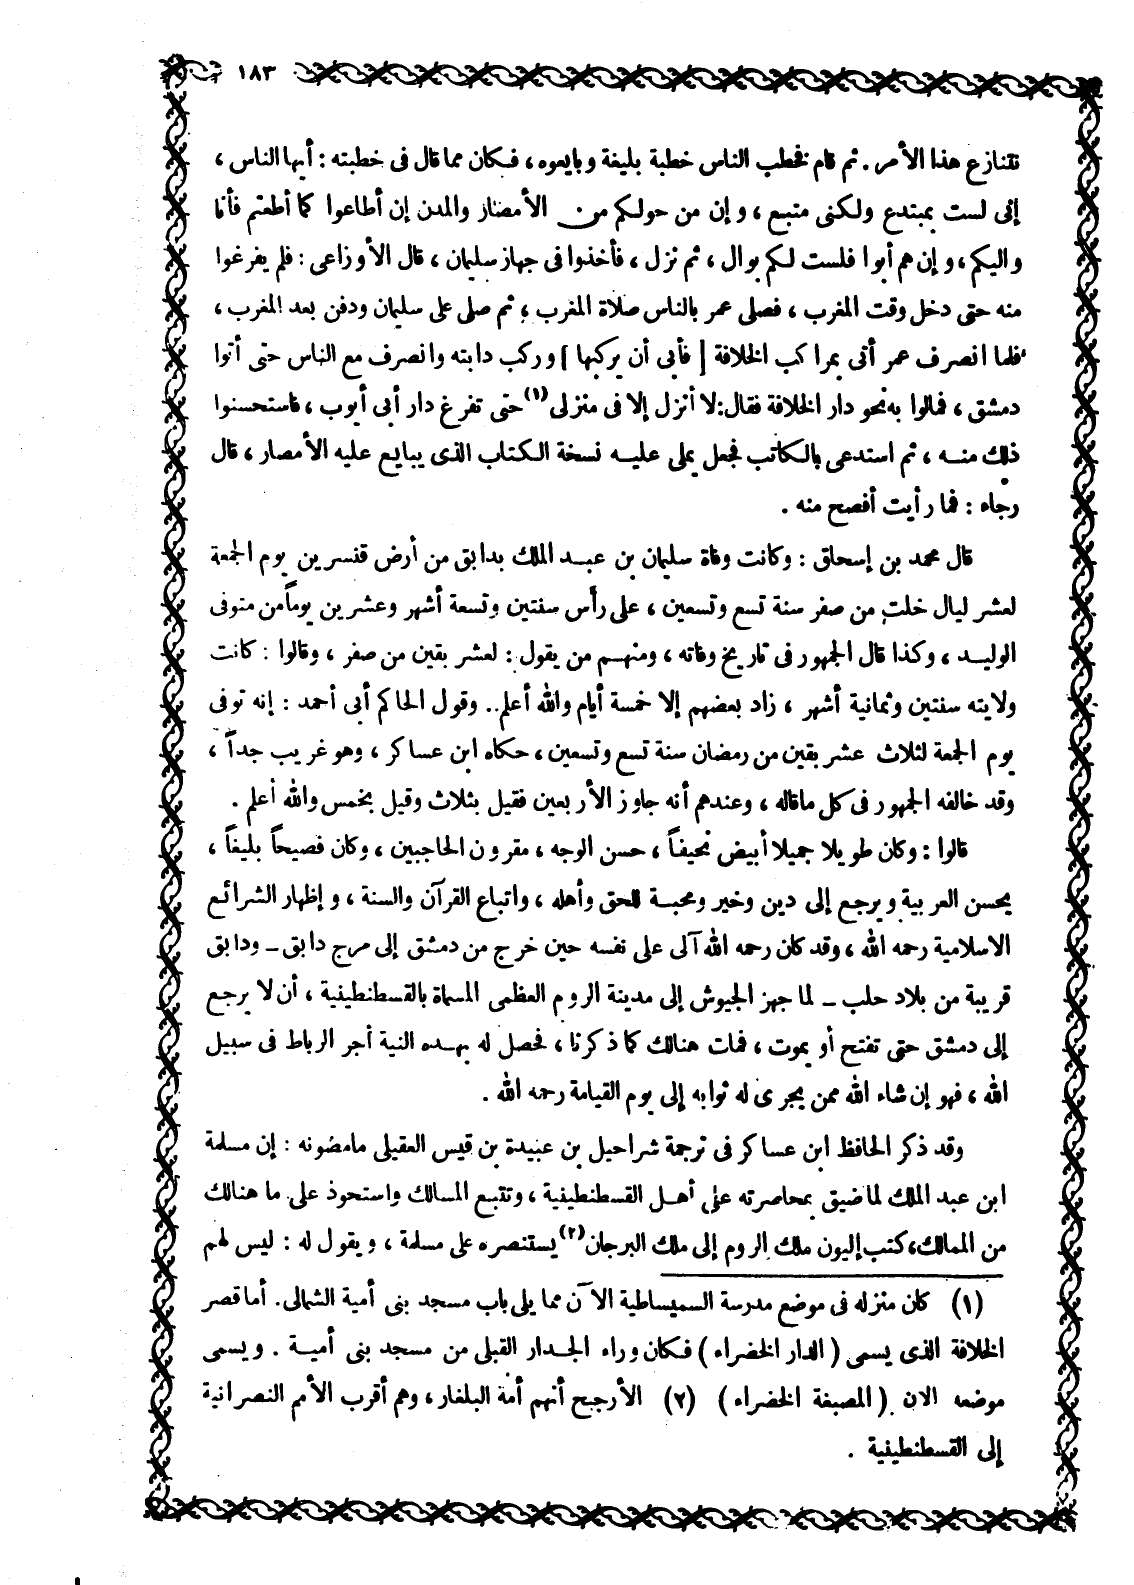 ١٨٣
نتنازع هذا الأمر . ثم قام فخطب الناس خطبة بليغة وبايعوه ، فكان مما قال فى خطبته : أيها الناس ،
إنى لست بمبتدع ولكنى متبع ، و إن من حولكم من الأمصار والمدن إن أطاعوا كما أطعتم فأنا
واليكم ، و إن هم أبوا فلست لكم بوال ، ثم نزل ، فأخذوا فى جهاز سليمان ، قال الأوزاعى : فلم يفرغوا
منه حتى دخل وقت المغرب ، فصلى عمر بالناس صلاة المغرب ، ثم صلى على سليمان ودفن بعد المغرب ،
فلما انصرف عمر أتى بمراكب الخلافة [ فأبى أن يركبها ] وركب دابته وانصرف مع الناس حتى أتوا
دمشق ، فمالوا به نحو دار الخلافة فقال : لا أنزل إلا فى منزلى (١) حتى تفرغ دار أبى أيوب ، فاستحسنوا
ذلك منه ، ثم استدعى بالكاتب فجعل يملى عليه نسخة الكتاب الذى يبايع عليه الأمصار ، قال
رجاء : فما رأيت أفصح منه .
قال محمد بن إسحاق : وكانت وفاة سليمان بن عبد الملك بدابق من أرض قنسرين يوم الجمعة
لعشر ليال خلت من صفر سنة تسع وتسعين ، على رأس سنتين وتسعة أشهر وعشرين يوماً من متوفى
الوليد ، وكذا قال الجمهور فى تاريخ وفاته ، ومنهم من يقول : لعشر بقين من صفر ، وقالوا : كانت
ولايته سنتين وثمانية أشهر ، زاد بعضهم إلا خمسة أيام والله أعلم .. وقول الحاكم أبى أحمد : إنه توفى
يوم الجمعة لثلاث عشر بقين من رمضان سنة تسع وتسعين ، حكاه ابن عساكر ، وهو غريب جداً ،
وقد خالفه الجمهور فى كل ماقاله ، وعندهم أنه جاوز الأربعين فقيل بثلاث وقيل بخمس والله أعلم .
قالوا : وكان طويلا جميلا أبيض نحيفاً ، حسن الوجه ، مقرون الحاجبين ، وكان فصيحاً بليغاً ،
يحسن العربية ويرجع إلى دين وخير ومحبة للحق وأهله ، واتباع القرآن والسنة ، و إظهار الشرائع
الاسلامية رحمه الله ، وقد كان رحمه الله آلى على نفسه حين خرج من دمشق إلى مرج دابق ــ ودابق
قريبة من بلاد حلب ــ لما جهز الجيوش إلى مدينة الروم العظمى المسماة بالقسطنطينية ، أن لا يرجع
إلى دمشق حتى تفتح أو يموت ، فمات هنالك كما ذكرنا ، فحصل له بهذه النية أجر الرباط فى سبيل
الله ، فهو إن شاء الله ممن يجرى له ثوابه إلى يوم القيامة رحمه الله .
وقد ذكر الحافظ ابن عساكر فى ترجمة شراحيل بن عبيدة بن قيس العقيلى مامضونه : إن مسلمة
ابن عبد الملك لما ضيق بمحاصرته على أهل القسطنطينية ، وتتبع المسالك واستحوذ على ما هنالك
من الممالك، كتب إليون ملك الروم إلى ملك البرجان (٢) يستنصره على مسلمة ، ويقول له : ليس لهم
(١) كان منزله فى موضع مدرسة السميساطية الآن مما يلى باب مسجد بنى أمية الشمالى . أما قصر
الخلافة الذى يسمى ( الدار الخضراء ) فكان وراء الجدار القبلى من مسجد بنى أمية . ويسمى
موضعه الان ( المصبغة الخضراء ) (٢) الأرجح أنهم أمة البلغار ، وهم أقرب الأمم النصرانية
إلى القسطنطينية .